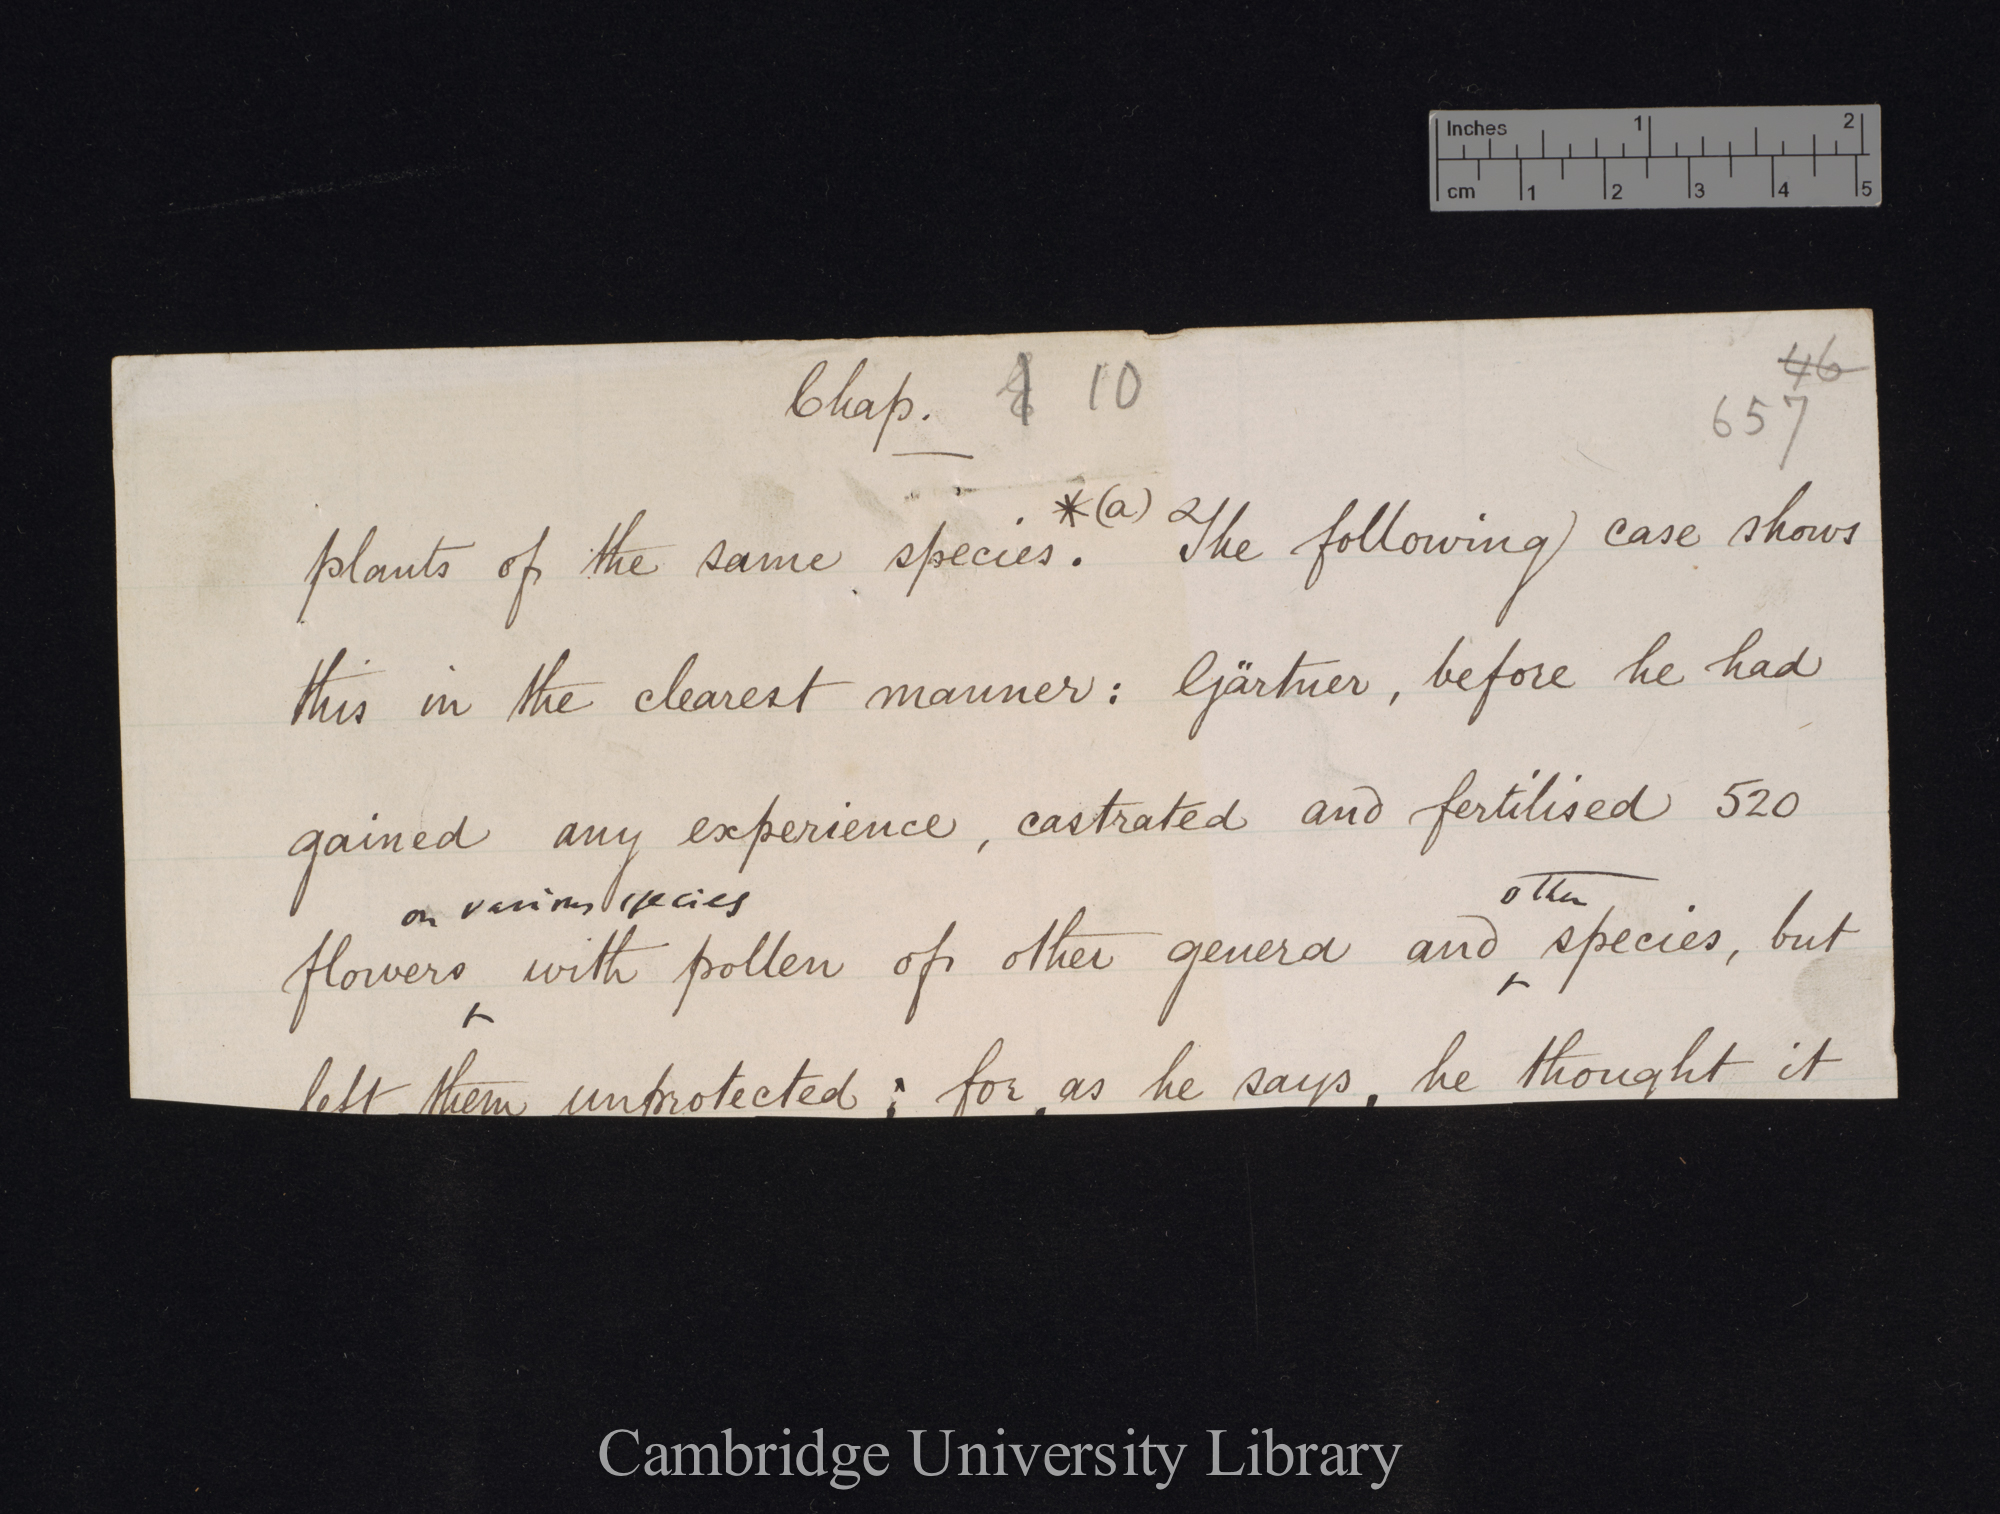 Inches 1 2
cm 1 2 3 4 5
Chap. 10
46
657
plants of the same species.*(a) The following case shows
this in the clearest manner: Gärtner, before he had
gained any experience, castrated and fertilised 520
on various species other
flowers with pollen of other genera and species, but
left them unprotected; for, as he says, he thought it
Cambridge University Library